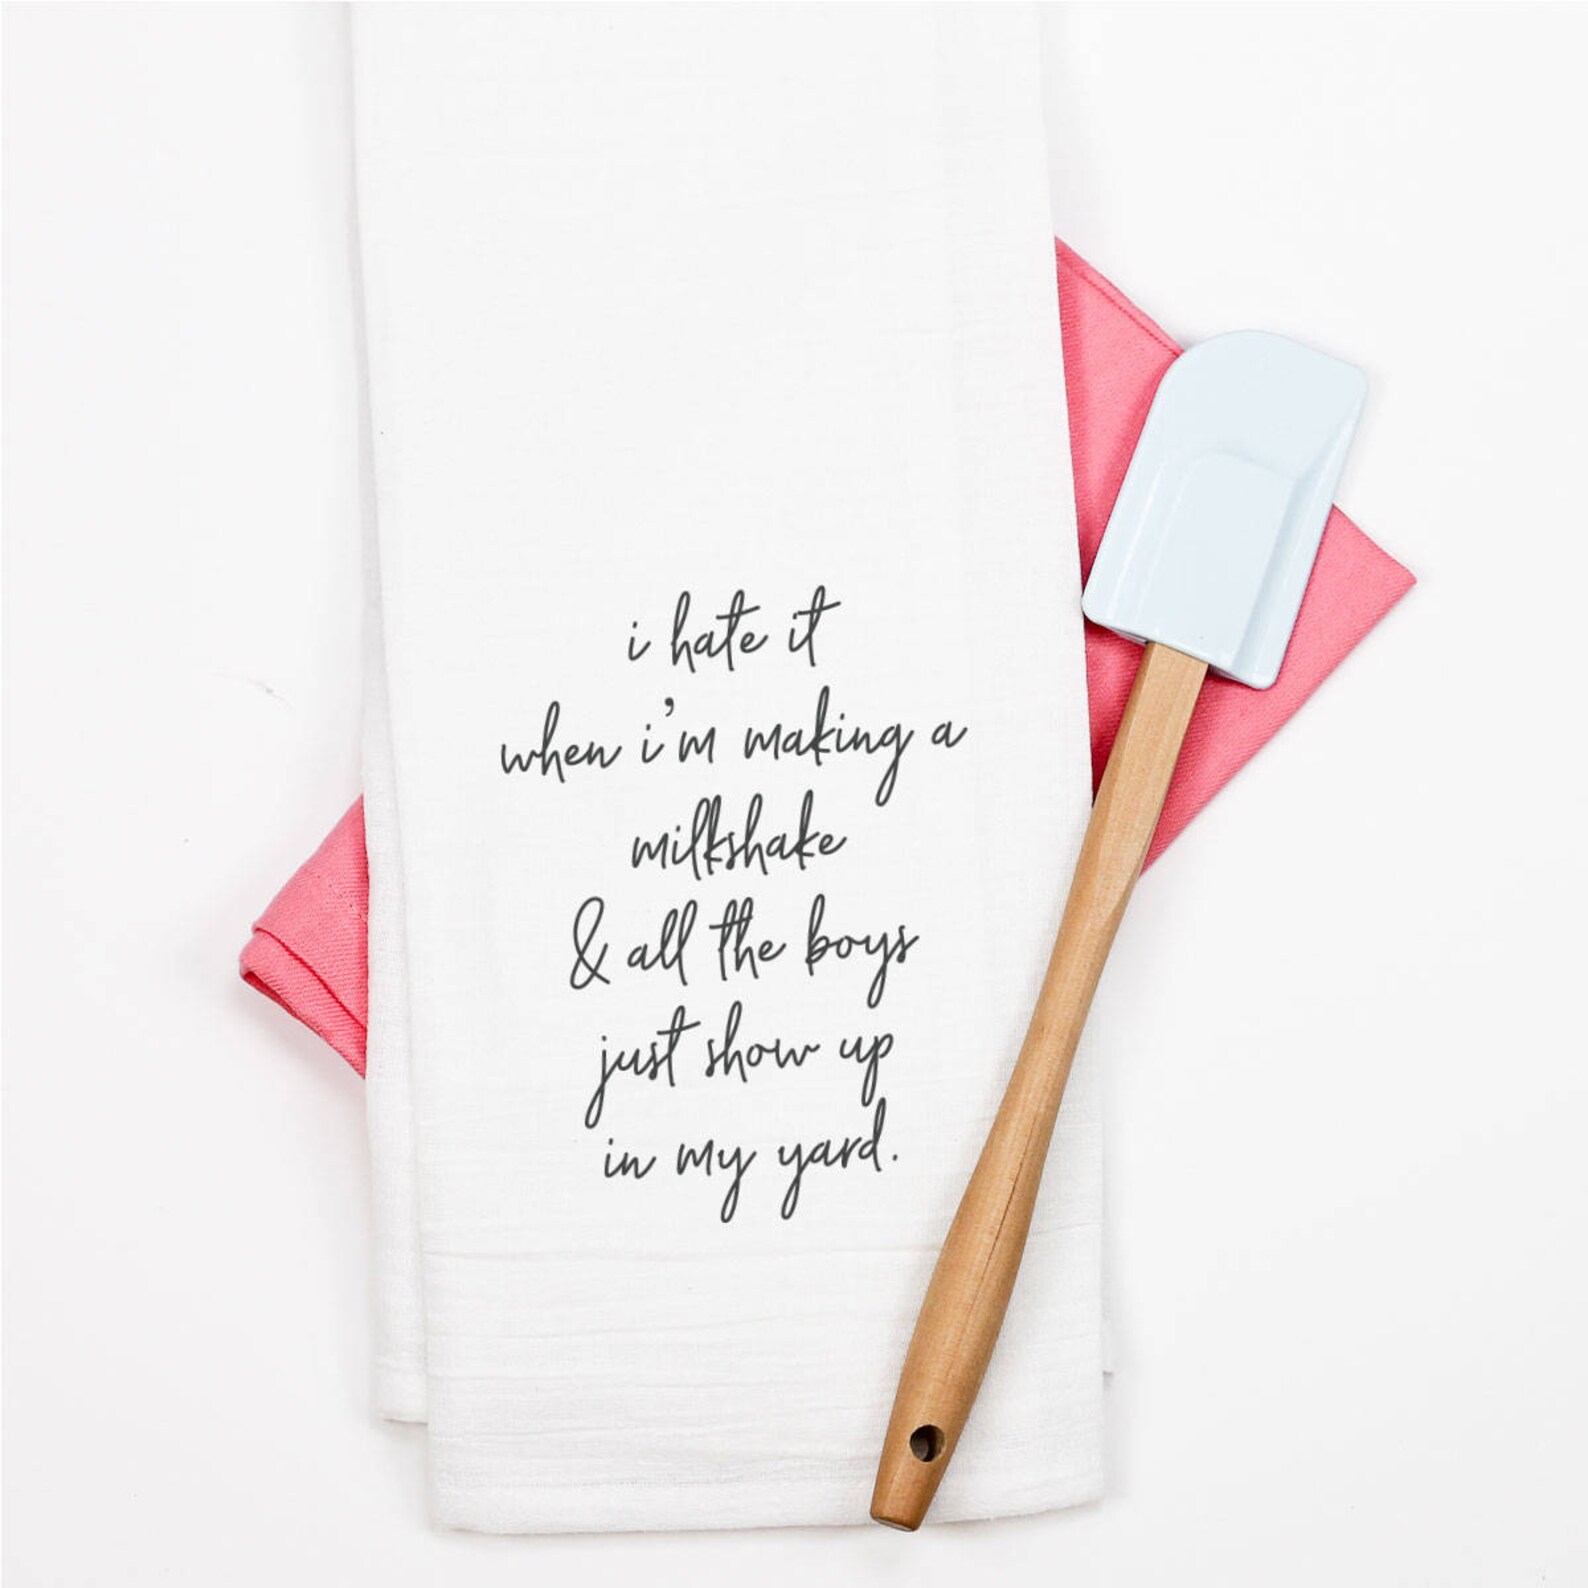 i hate it
when i'm making a
milkshake
& all the boys
just show up
in my yard.